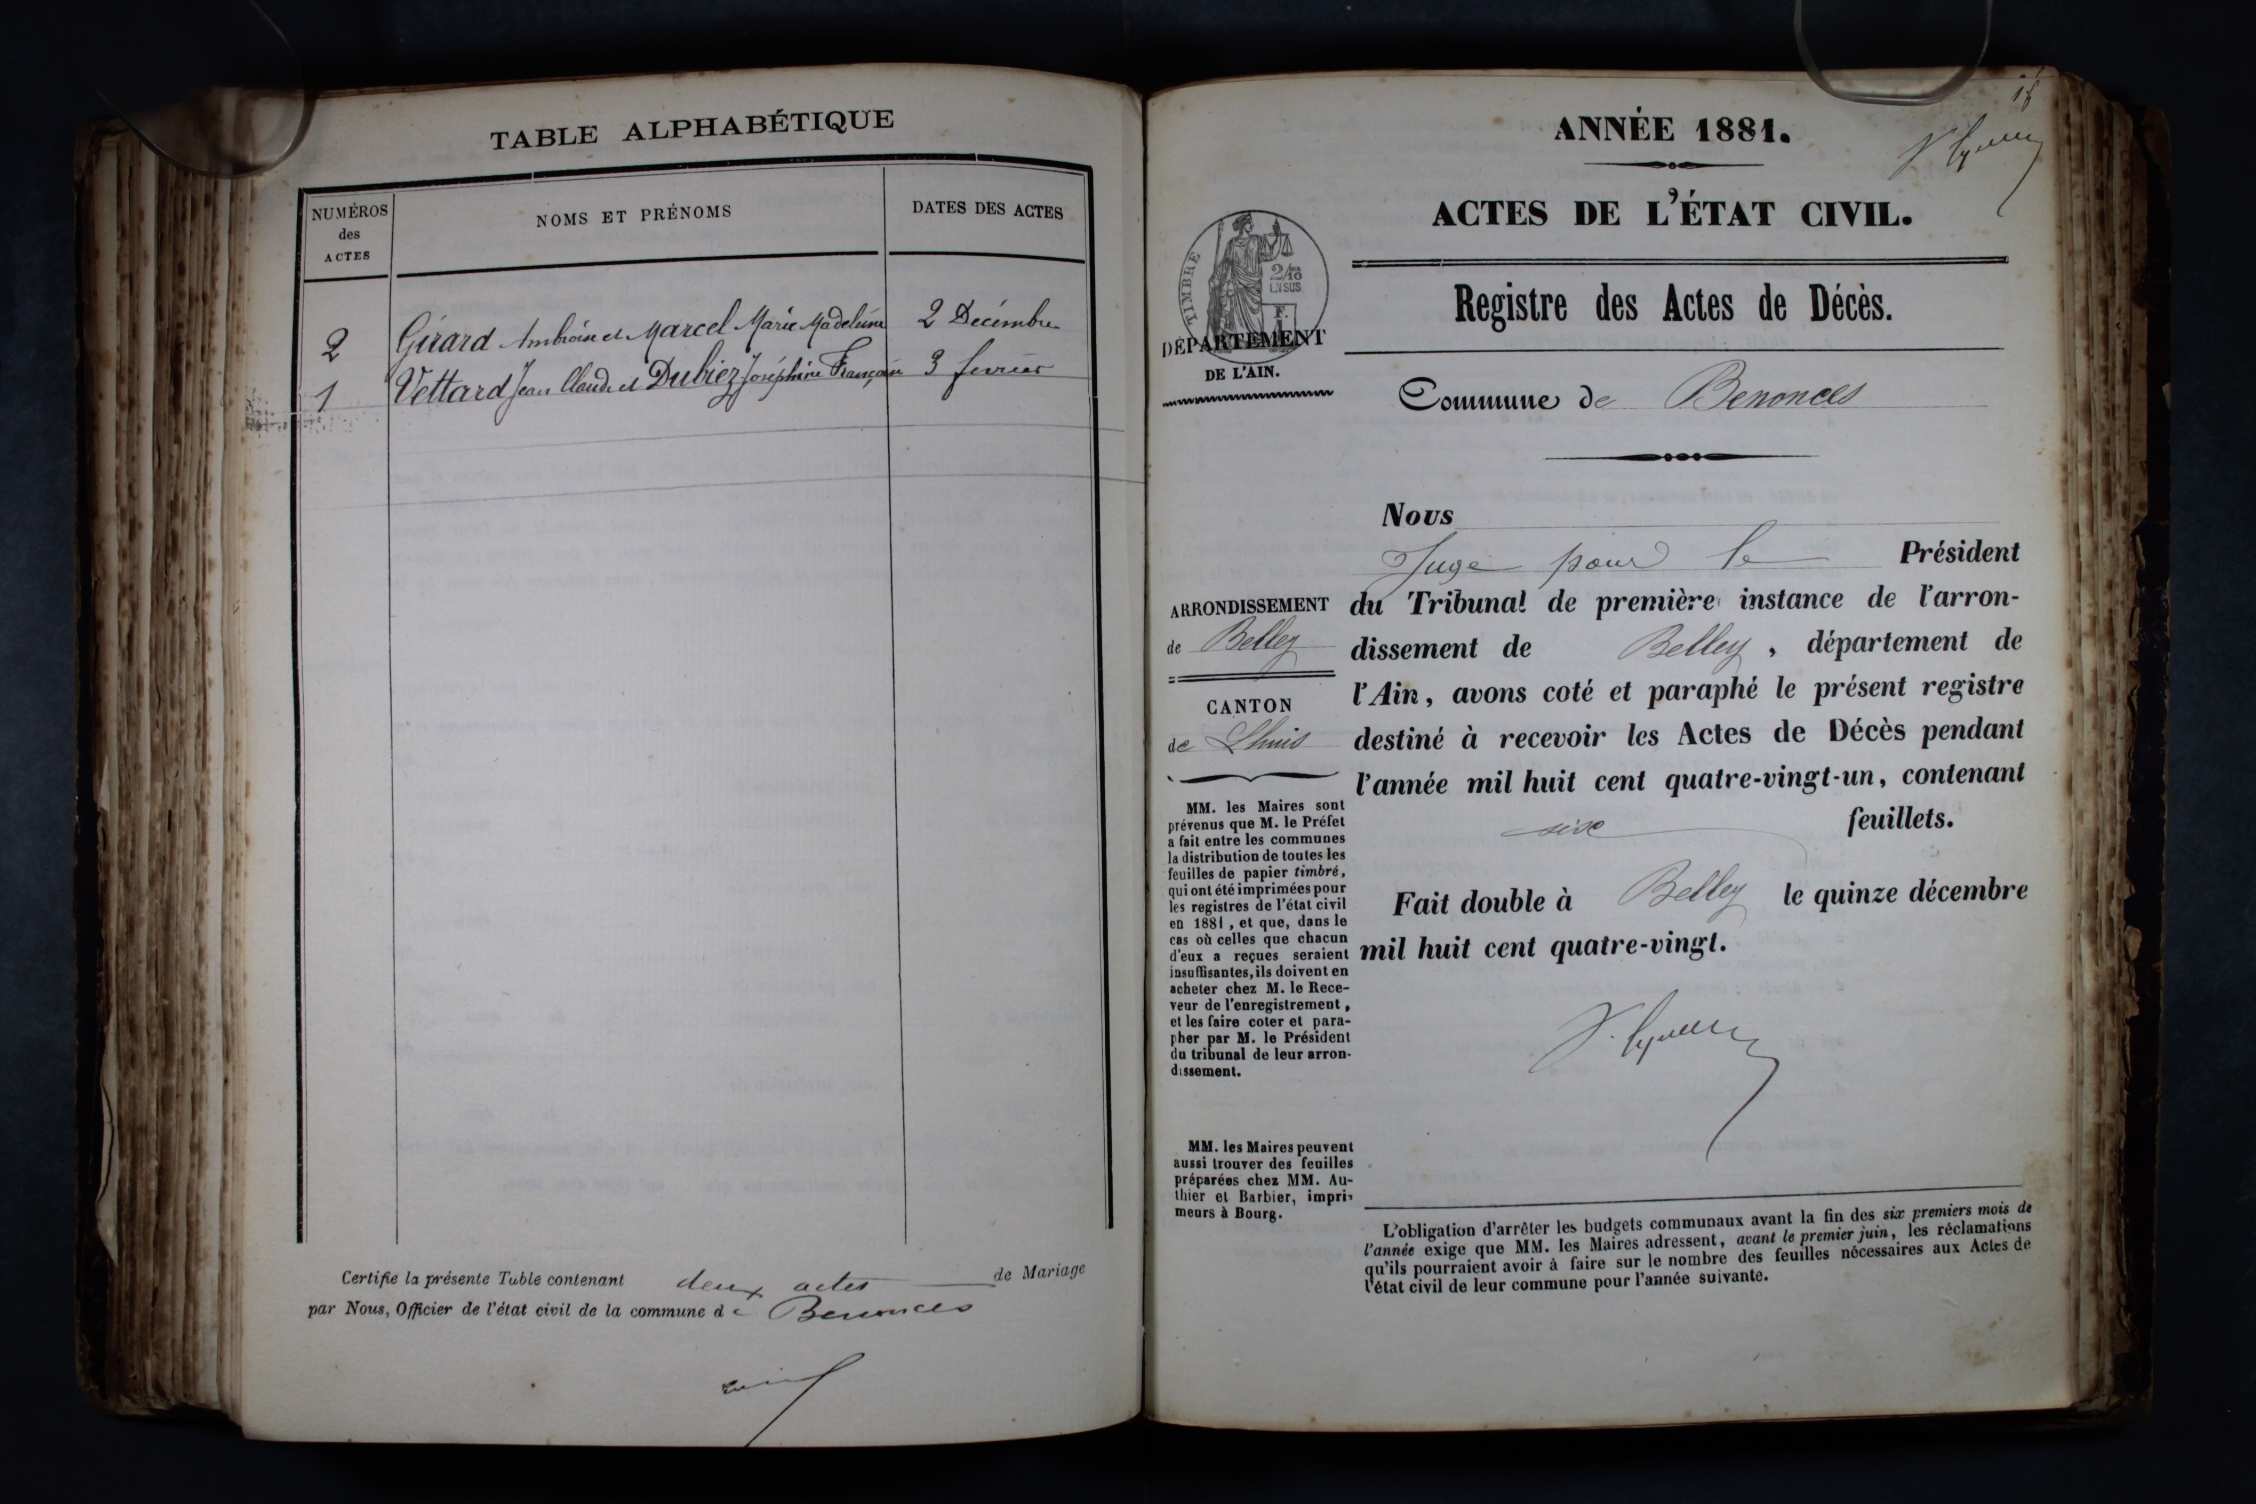 TABLE ALPHABÉTIQUE
NUMÉROS
des
ACTES
NOMS ET PRÉNOMS
DATES DES ACTES
2 Girard Ambroise et Marcel Marie Madeleine 2 Décembre
1 Vettard Jean Claude et Dubiez Joséphine Françoise 3 fevrier
Certifie la présente Table contenant deux actes de Mariage
par Nous, Officier de l'état civil de la commune de Benonces
ANNÉE 1881.
ACTES DE L'ÉTAT CIVIL.
TIMBRE
2/10
EN SUS
F.
DÉPARTEMENT
DE L'AIN.
Registre des Actes de Décès.
Commune de Benonces
ARRONDISSEMENT
de Belley
CANTON
de Lhuis
MM. les Maires sont
prévenus que M. le Préfet
a fait entre les communes
la distribution de toutes les
feuilles de papier timbré,
qui ont été imprimées pour
les registres de l'état civil
en 1881, et que, dans le
cas où celles que chacun
d'eux a reçues seraient
insuffisantes, ils doivent en
acheter chez M. le Rece-
veur de l'enregistrement,
et les faire coter et para-
pher par M. le Président
du tribunal de leur arron-
dissement.
MM. les Maires peuvent
aussi trouver des feuilles
préparées chez MM. Au-
thier et Barbier, impri-
meurs à Bourg.
Nous
Juge pour le Président
du Tribunal de première instance de l'arron-
dissement de Belley, département de
l'Ain, avons coté et paraphé le présent registre
destiné à recevoir les Actes de Décès pendant
l'année mil huit cent quatre-vingt-un, contenant
six feuillets.
Fait double à Belley le quinze décembre
mil huit cent quatre-vingt.
L'obligation d'arrêter les budgets communaux avant la fin des six premiers mois de
l'année exige que MM. les Maires adressent, avant le premier juin, les réclamations
qu'ils pourraient avoir à faire sur le nombre des feuilles nécessaires aux Actes de
l'état civil de leur commune pour l'année suivante.